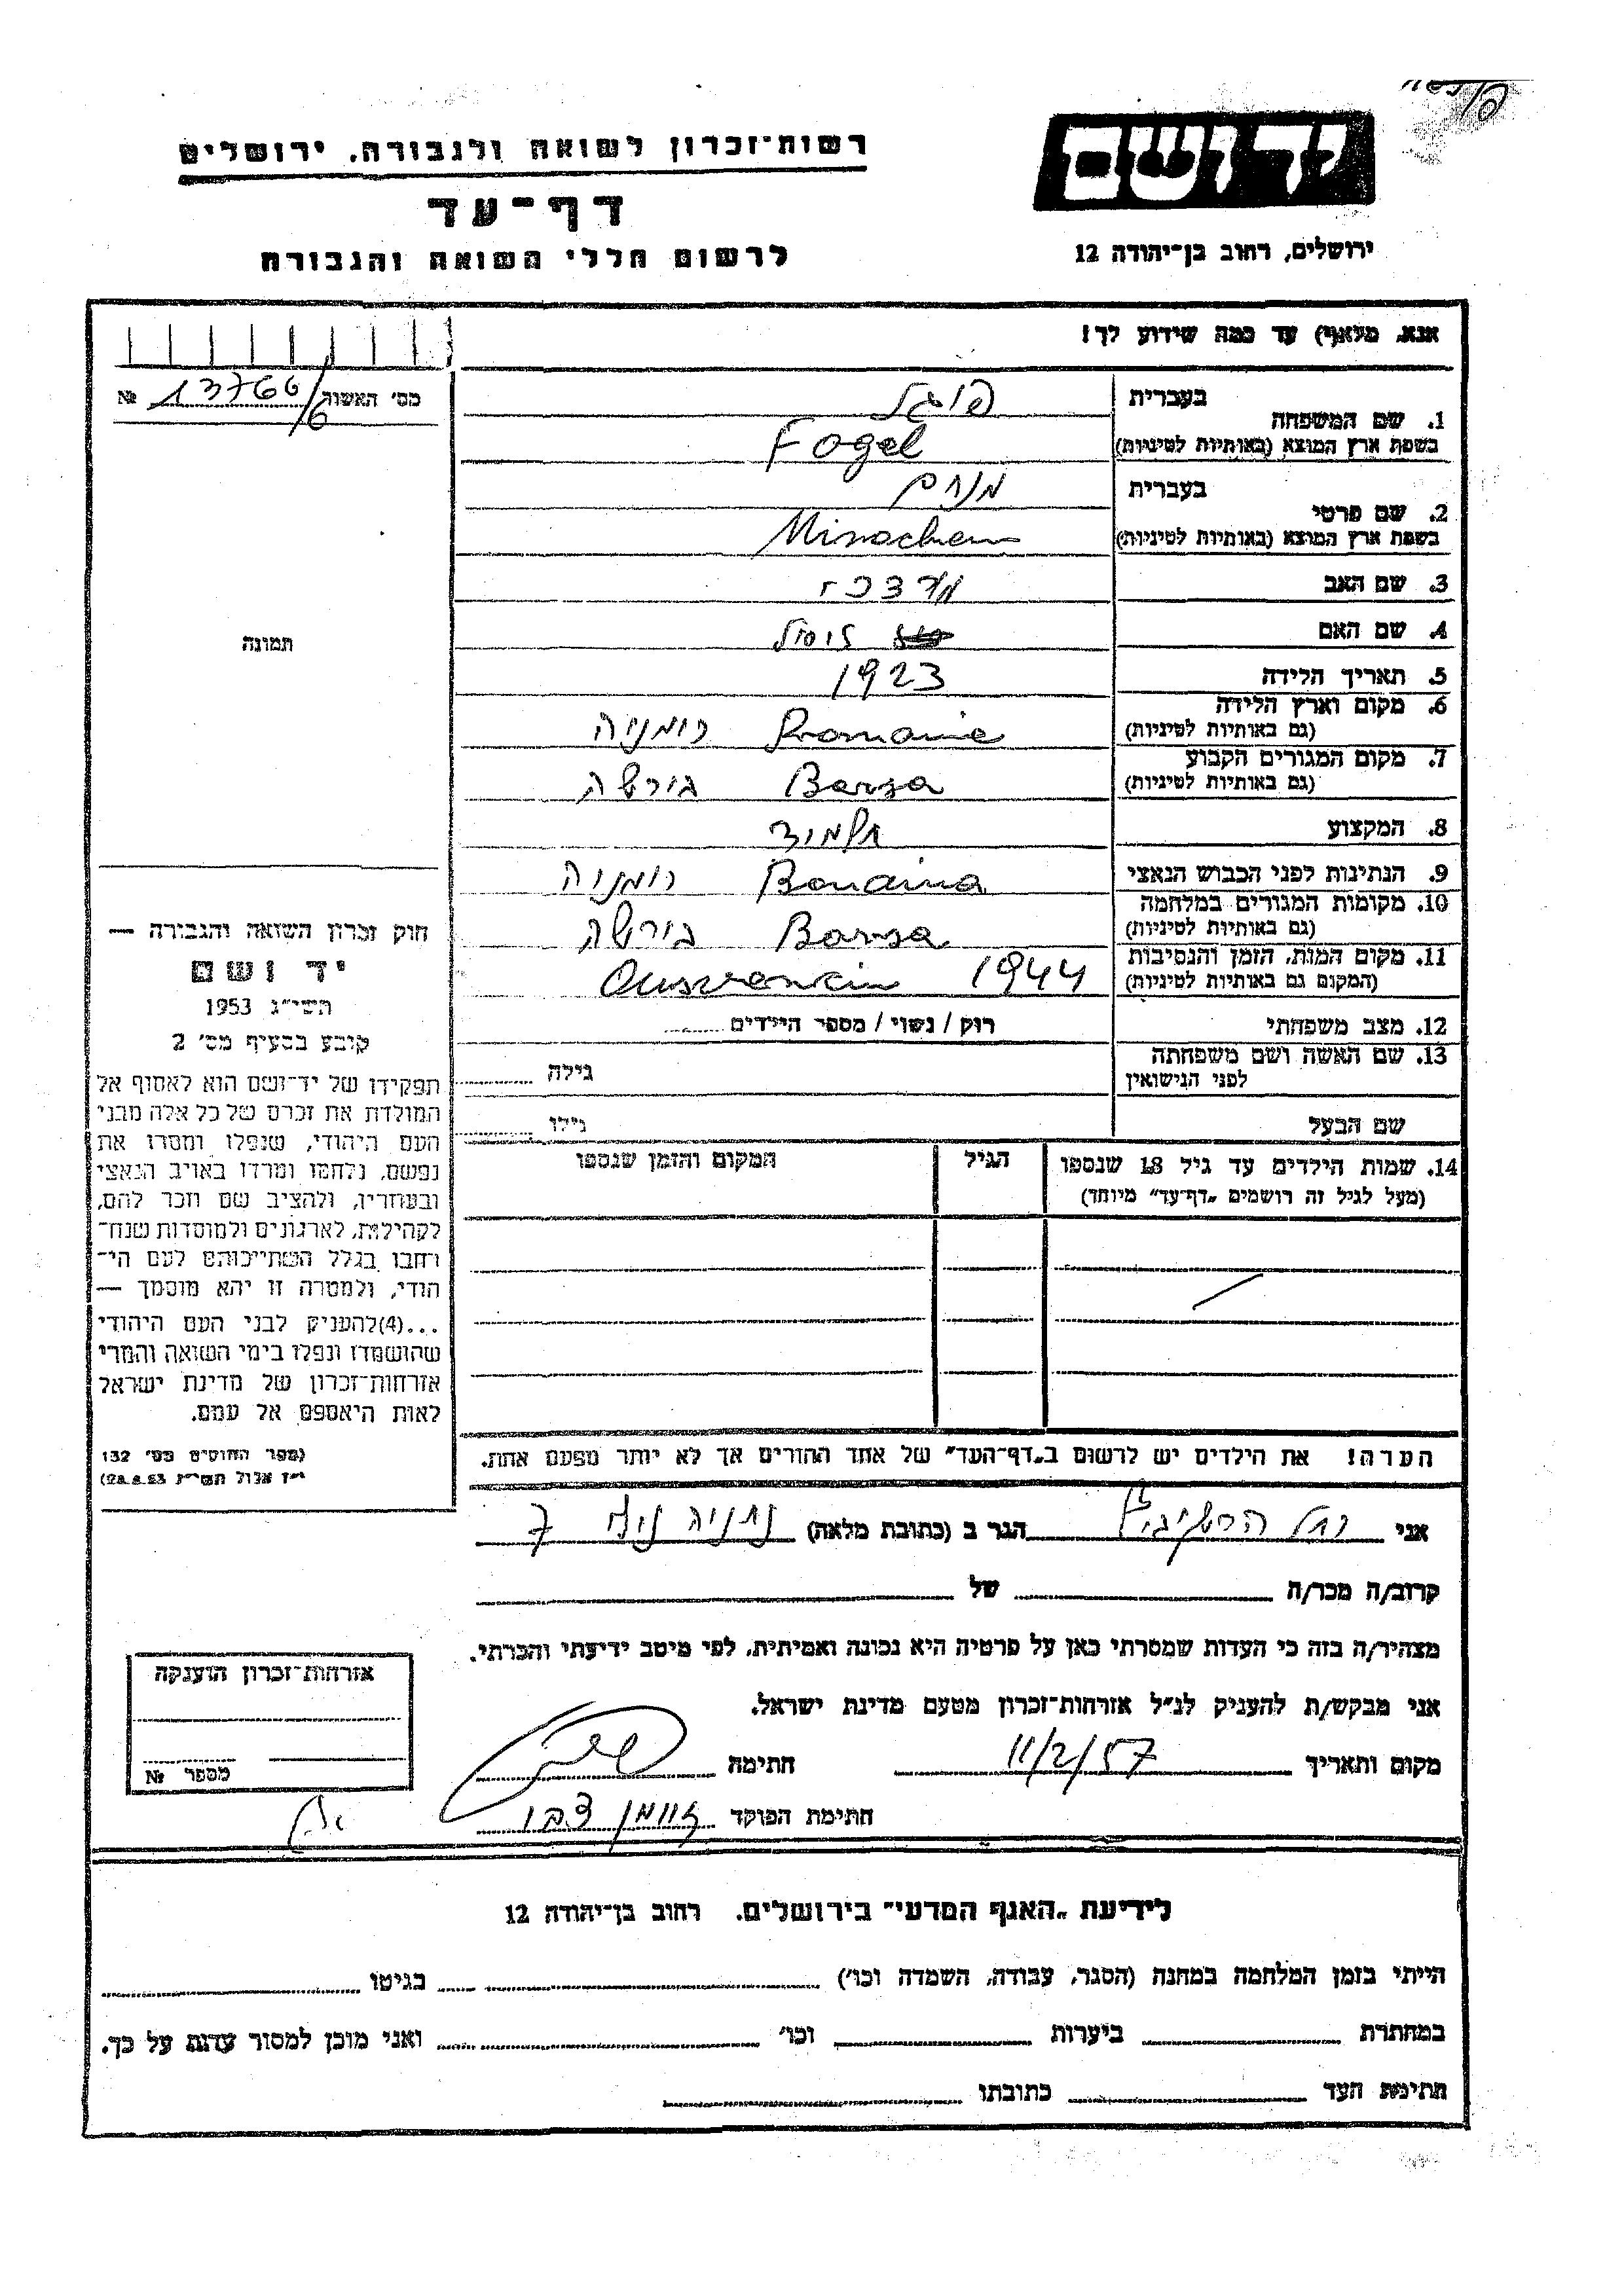 יד ושם
ירושלים, רחוב בן־יהודה 12
רשות־זכרון לשואה ולגבורה, ירושלים
דף־עד
לרשום חללי השואה והגבורה
אנא, מלא(י) עד כמה שידוע לך!
מס׳ האשור 13766/6 №
1. שם המשפחה בעברית פוגל
בשפת ארץ המוצא (באותיות לטיניות) Fogel
2. שם פרטי בעברית מנחם
בשפת ארץ המוצא (באותיות לטיניות) Minachem
3. שם האב מרדכי
4. שם האם
5. תאריך הלידה 1923
6. מקום וארץ הלידה
(גם באותיות לטיניות) Romania רומניה
7. מקום המגורים הקבוע
(גם באותיות לטיניות) Borsa בורשה
8. המקצוע תלמיד
9. הנתינות לפני הכבוש הנאצי רומניה
10. מקומות המגורים במלחמה
(גם באותיות לטיניות) Borsa בורשה
11. מקום המות, הזמן והנסיבות
(המקום גם באותיות לטיניות) 1944
12. מצב משפחתי רווק / נשוי / מספר הילדים
13. שם האשה ושם משפחתה
לפני הנישואין גילה
שם הבעל גילו
14. שמות הילדים עד גיל 18 שנספו הגיל המקום והזמן שנספו
(מעל לגיל זה רושמים „דף־עד” מיוחד)
הערה! את הילדים יש לרשום ב„דף־העד” של אחד ההורים אך לא יותר מפעם אחת.
תמונה
חוק זכרון השואה והגבורה —
יד ושם
תשי״ג 1953
קובע בסעיף מס׳ 2
תפקידו של יד־ושם הוא לאסוף אל
המולדת את זכרם של כל אלה מבני
העם היהודי, שנפלו ומסרו את
נפשם, נלחמו ומרדו באויב הנאצי
ובעוזריו, ולהציב שם וזכר להם,
לקהילות, לארגונים ולמוסדות שנח־
רבו בגלל השתייכותם לעם הי־
הודי, ולמטרה זו יהא מוסמך —
...(4) להעניק לבני העם היהודי
שהושמדו ונפלו בימי השואה והמרי
אזרחות־זכרון של מדינת ישראל
לאות היאספם אל עמם.
(ספר החוקים מס׳ 132
י״ז אלול תשי״ג 28.8.53)
אני רחל הרשקוביץ הגר ב (כתובת מלאה) נתניה 7
קרוב/ה מכר/ה של
מצהיר/ה בזה כי העדות שמסרתי כאן על פרטיה היא נכונה ואמיתית, לפי מיטב ידיעתי והכרתי.
אני מבקש/ת להעניק לנ״ל אזרחות־זכרון מטעם מדינת ישראל.
מקום ותאריך 11/2/57 חתימה
חתימת הפוקד
אזרחות־זכרון הוענקה
מספר №
לידיעת „האגף המדעי” בירושלים. רחוב בן־יהודה 12
הייתי בזמן המלחמה במחנה (הסגר, עבודה, השמדה וכו׳) בגיטו
במחתרת ביערות וכו׳ ואני מוכן למסור עדות על כך.
חתימת העד כתובתו